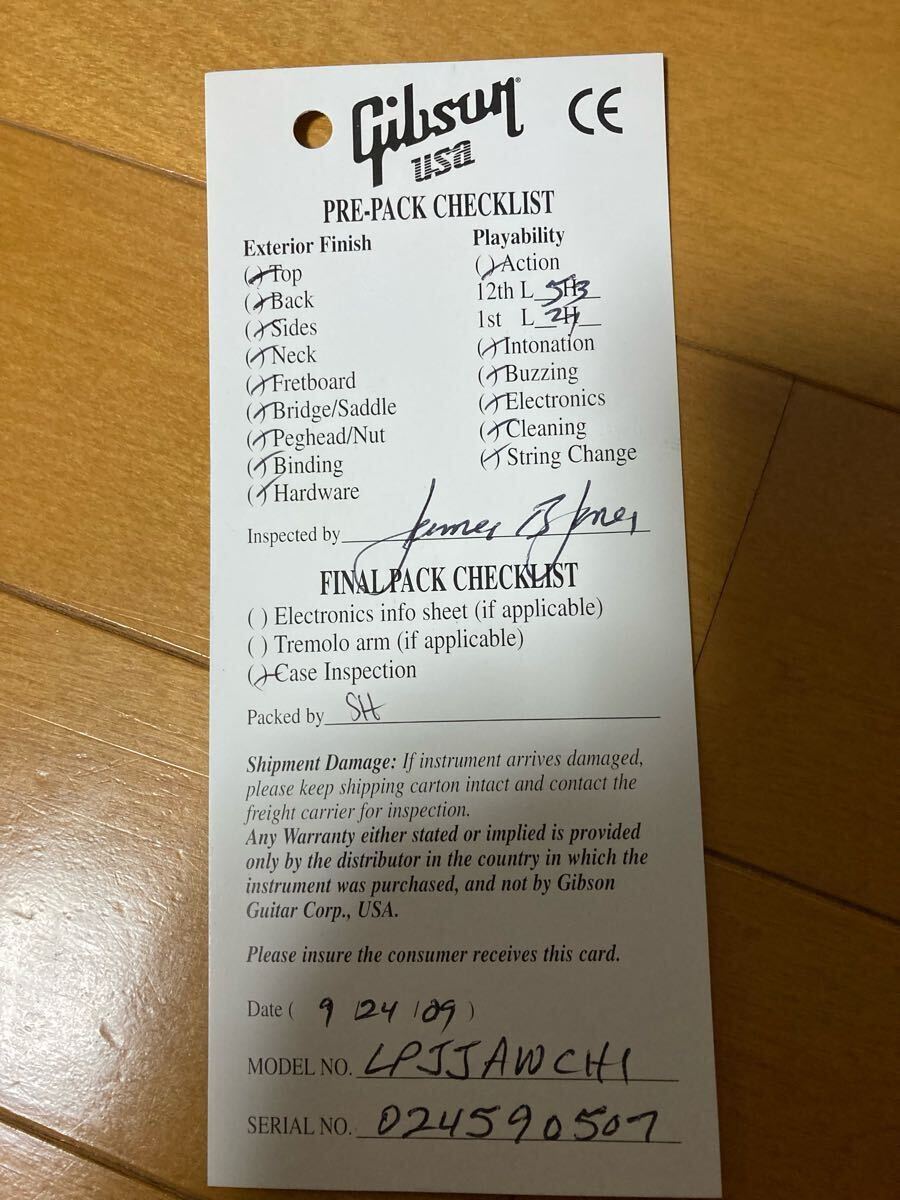 Gibson CE
USA
PRE-PACK CHECKLIST
Exterior Finish
(✓) Top
(✓) Back
(✓) Sides
(✓) Neck
(✓) Fretboard
(✓) Bridge/Saddle
(✓) Peghead/Nut
(✓) Binding
(✓) Hardware
Playability
(✓) Action
12th L
1st L 2H
(✓) Intonation
(✓) Buzzing
(✓) Electronics
(✓) Cleaning
(✓) String Change
Inspected by James B Jones
FINAL PACK CHECKLIST
( ) Electronics info sheet (if applicable)
( ) Tremolo arm (if applicable)
(✓) Case Inspection
Packed by SH
Shipment Damage: If instrument arrives damaged,
please keep shipping carton intact and contact the
freight carrier for inspection.
Any Warranty either stated or implied is provided
only by the distributor in the country in which the
instrument was purchased, and not by Gibson
Guitar Corp., USA.
Please insure the consumer receives this card.
Date ( 9 /24 /09 )
MODEL NO. LPJJAWCH1
SERIAL NO. 024590507